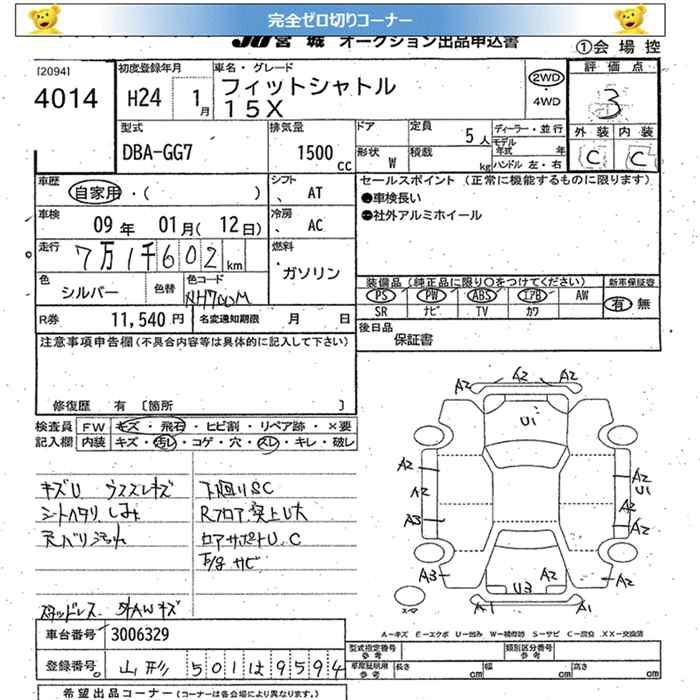 完全ゼロ切りコーナー
JU宮城 オークション出品申込書 ①会場控
[2094] 初度登録年月 車名・グレード 評価点
4014 H24 1月 フィットシャトル 15X 2WD・4WD 3
型式 排気量 ドア 定員 5人 ディーラー・並行 外装 内装
DBA-GG7 1500cc 形状 W 積載 kg モデル年式 年 ハンドル 左・右 C C
車歴 自家用・( ) シフト AT セールスポイント (正常に機能するものに限ります)
車検 09年 01月(12日) 冷房 AC ●車検長い
●社外アルミホイール
走行 7万1千602km 燃料 ガソリン
色 シルバー 色替 色コード NH700M 装備品(純正品に限り○をつけてください) 新車保証書
PS PW ABS エアB AW 有・無
SR ナビ TV カワ
R券 11,540円 名変通知期限 月 日 後日品
保証書
注意事項申告欄(不具合内容等は具体的に記入して下さい)
修復歴 有 [箇所 ]
検査員 FW キズ・飛石・ヒビ割・リペア跡・×要
記入欄 内装 キズ・汚レ・コゲ・穴・スレ・キレ・破レ
キズU ウススレキズ 下回りSC
シートヘタリ しみ Rフロア突上U大
天バリ汚れ ロアサポートU、C
下回 サビ
スタッドレス 外AWキズ
A2 A2 A2
U1
A2 A2
A2 U1
A2
A3 A2
A3 U3 A2 A2
スマ A1 A1
A－キズ E－エクボ U－凹み W－補修跡 S－サビ C－腐食 XX－交換済
車台番号 3006329 型式指定番号 参考 類別区分番号 参考
登録番号 山形 501は9594 車庫証明用 参考 長さ cm 幅 cm 高さ cm
希望出品コーナー (コーナーは各会場により異なります。)